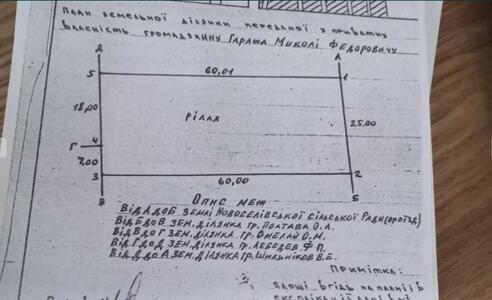 План земельної ділянки переданої у приватну
власність громадянину Гараша Миколі Федоровичу
Д
А
5
60,01
1
18,00
рілля
25,00
Г
4
7,00
3
60,00
2
В
Б
Опис меж
Від А до Б землі Новоселівської сільської Ради (проїзд)
Від Б до В зем. ділянка гр. Полтава О.А.
Від В до Г зем. ділянка гр. Омелай О.М.
Від Г до Д зем. ділянка гр. Лебедєв Ф.П.
Від Д до А зем. ділянка гр. Шильніков В.Е.
Примітка:
площі вгідь на плані і в
експлікації